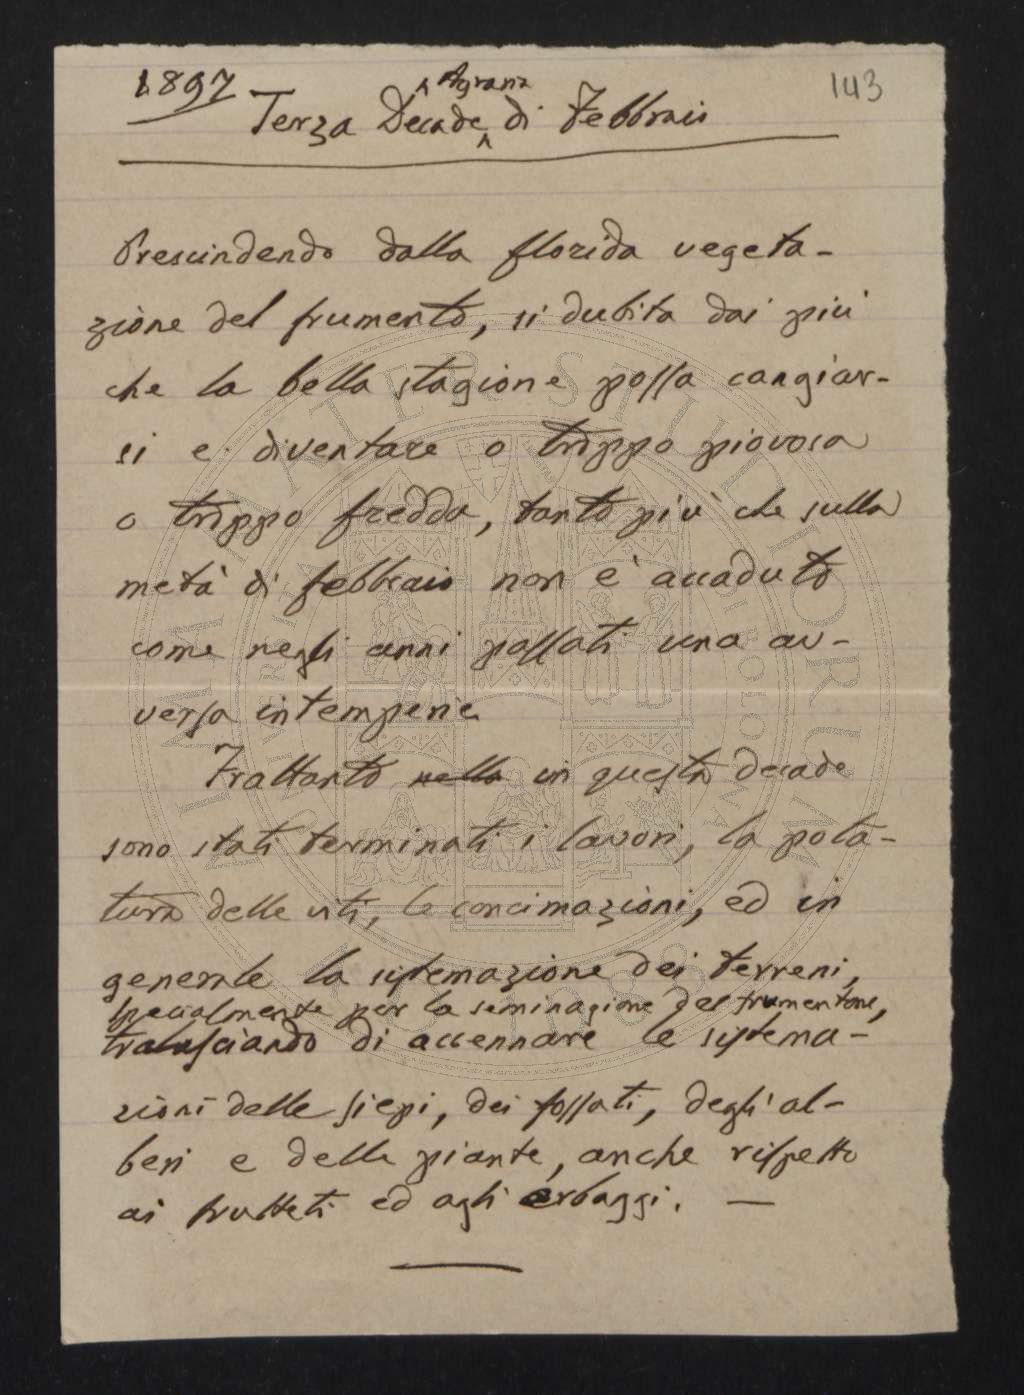 1897
143
Terza Decade Agraria di Febbraio
Prescindendo dalla florida vegeta-
zione del frumento, si dubita dai più
che la bella stagione possa cangiar-
si e diventare o troppo piovosa
o troppo fredda, tanto più che sulla
metà di febbraio non è accaduto
come negli anni passati una av-
versa intemperie
Frattanto nella in questa decade
sono stati terminati i lavori, la pota-
tura delle viti, le concimazioni, ed in
generale la sistemazione dei terreni,
specialmente per la seminagione del frumentone,
tralasciando di accennare le sistema-
zioni delle siepi, dei fossati, degli al-
beri e delle piante, anche rispetto
ai frutteti ed agli erbaggi. —
ALMA MATER STUDIORUM